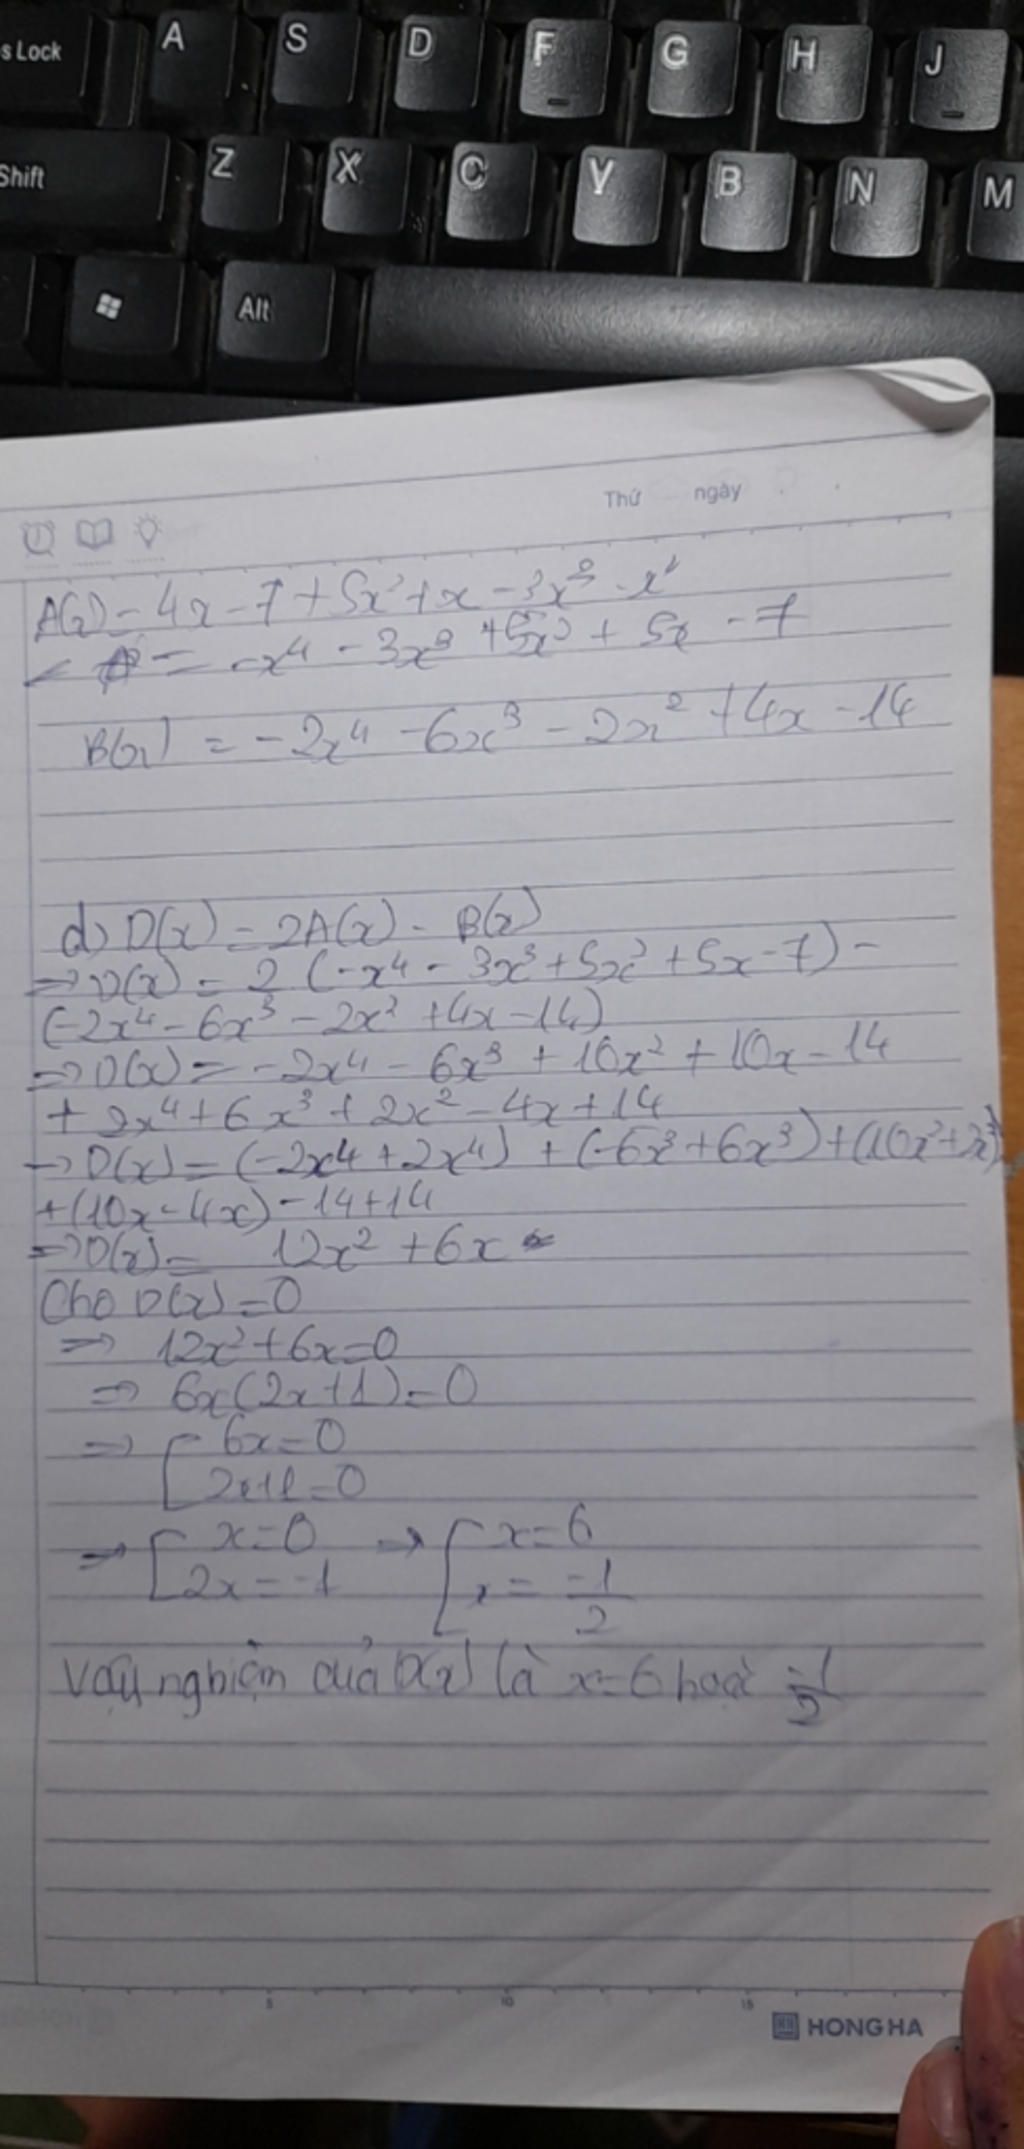 s Lock A S D F G H J
Shift Z X C V B N M
Alt
Thứ ngày
A(x) = 4x - 7 + 5x² + x - 3x³ - x⁴
= -x⁴ - 3x³ + 5x² + 5x - 7
B(x) = -2x⁴ - 6x³ - 2x² + 4x - 14
d) D(x) = 2A(x) - B(x)
=> D(x) = 2 (-x⁴ - 3x³ + 5x² + 5x - 7) -
(-2x⁴ - 6x³ - 2x² + 4x - 14)
=> D(x) = -2x⁴ - 6x³ + 10x² + 10x - 14
+ 2x⁴ + 6x³ + 2x² - 4x + 14
=> D(x) = (-2x⁴ + 2x⁴) + (-6x³ + 6x³) + (10x² + 2x²)
+ (10x - 4x) - 14 + 14
=> D(x) = 12x² + 6x
Cho D(x) = 0
=> 12x² + 6x = 0
=> 6x(2x + 1) = 0
=> [ 6x = 0
2x + 1 = 0
=> [ x = 0 => [ x = 6
2x = -1 x = -1/2
Vậy nghiệm của D(x) là x = 6 hoặc -1/2
5 10 15
HONG HA